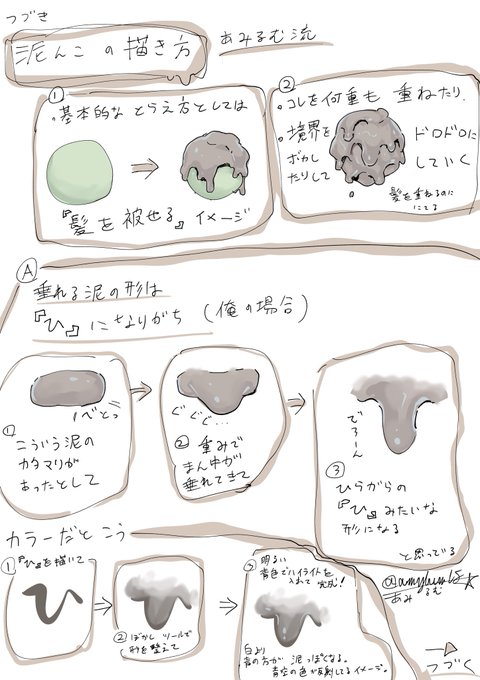 つづき
泥んこの描き方
あみるむ流
①
。基本的な とらえ方としては
『髪を被せる』イメージ
②
。コレを何重も 重ねたり、
。境界を
ボカし
たりして
ドロドロに
していく
髪を重ねるのに
にてる
Ⓐ
垂れる泥の形は
『ひ』になりがち (俺の場合)
べとっ
①
こういう泥の
カタマリが
あったとして
ぐぐぐ…
② 重みで
まん中が
垂れてきて
でろーん
③
ひらがらの
『ひ』みたいな
形になる
と思っている
カラーだと こう
① 『ひ』を描いて
ひ
② ぼかしツールで
形を整えて
③ 明るい
青色でハイライトを
入れて 完成!
白より
青の方が 泥っぽくなる。
青空の色が反射してるイメージ。
あみるむ
つづく